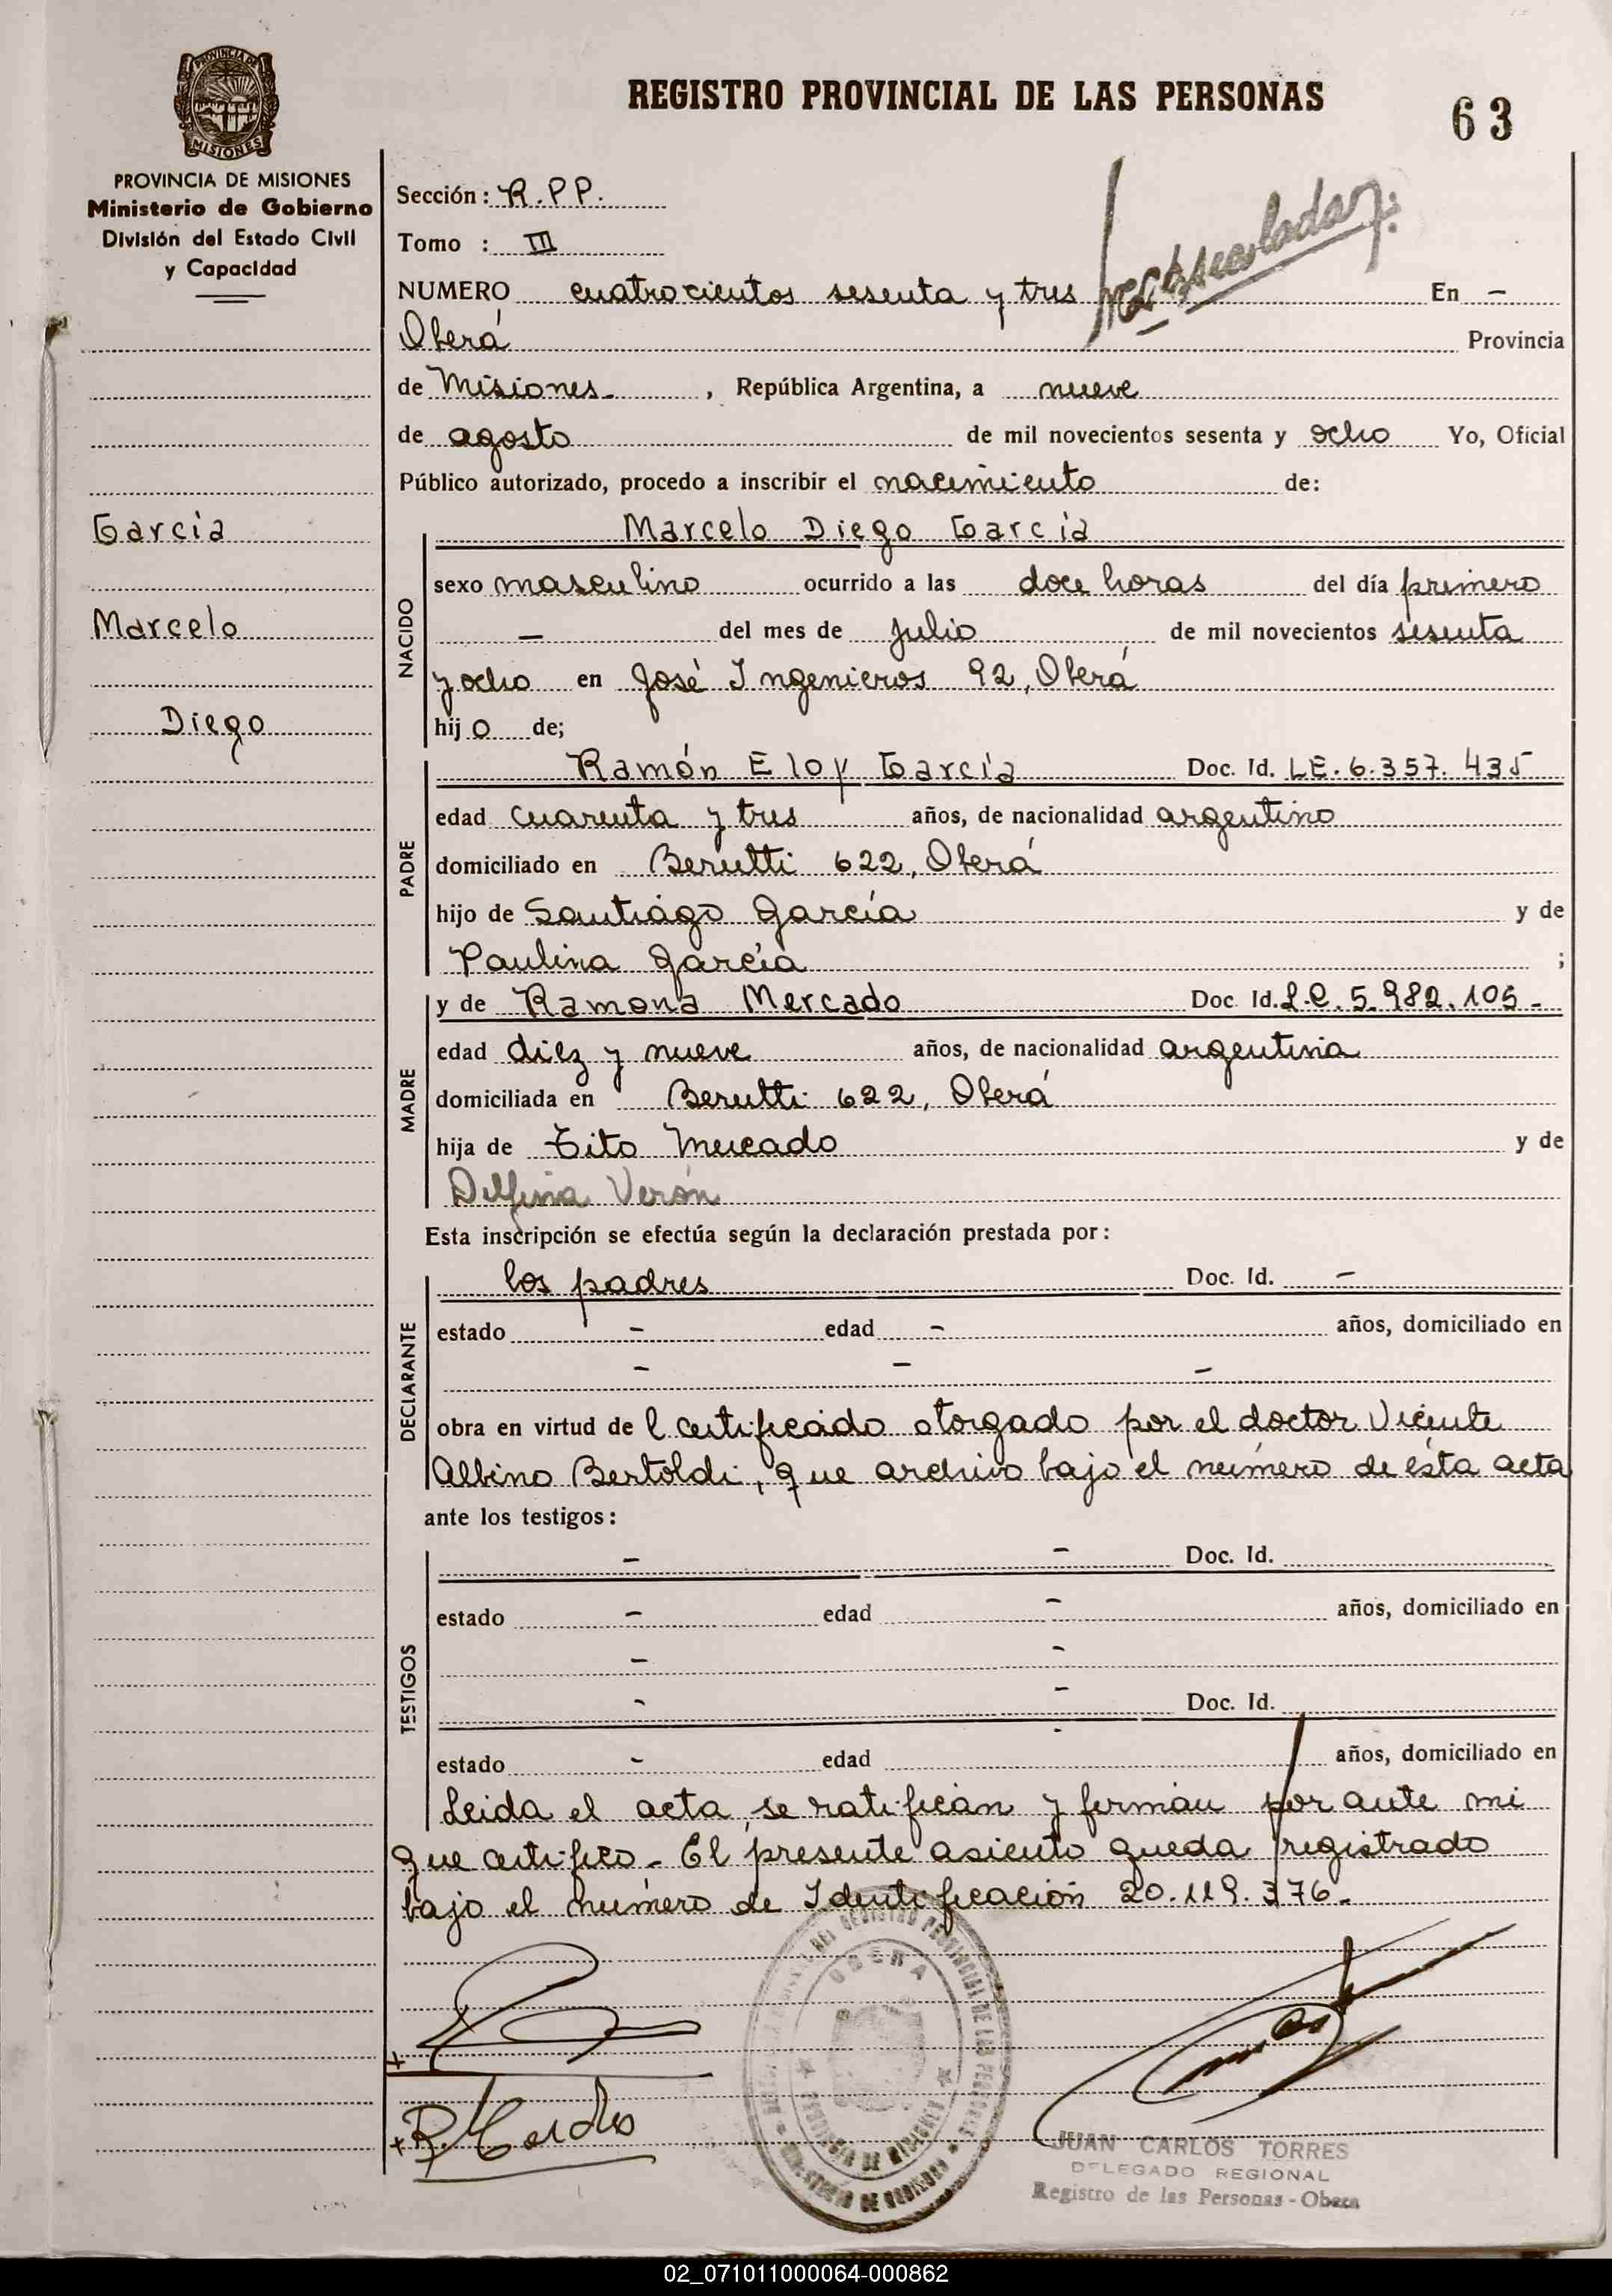 REGISTRO PROVINCIAL DE LAS PERSONAS
63
PROVINCIA DE
MISIONES
PROVINCIA DE MISIONES
Ministerio de Gobierno
División del Estado Civil
y Capacidad
García
Marcelo
Diego
Sección: R.P.P.
Tomo : III
NUMERO cuatrocientos sesenta y tres En -
Oberá Provincia
de Misiones. , República Argentina, a nueve
de agosto de mil novecientos sesenta y ocho Yo, Oficial
Público autorizado, procedo a inscribir el nacimiento de:
NACIDO
Marcelo Diego García
sexo masculino ocurrido a las doce horas del día primero
- del mes de julio de mil novecientos sesenta
y ocho en José Ingenieros 92, Oberá
hijo de;
PADRE
Ramón Eloy García Doc. Id. LE. 6.357.435
edad cuarenta y tres años, de nacionalidad argentino
domiciliado en Berutti 622, Oberá
hijo de Santiago García y de
Paulina García ;
MADRE
y de Ramona Mercado Doc. Id. L.C. 5.982.105-
edad diez y nueve años, de nacionalidad argentina
domiciliada en Berutti 622, Oberá
hija de Tito Mercado y de
Delfina Verón
Esta inscripción se efectúa según la declaración prestada por:
DECLARANTE
los padres Doc. Id. -
estado - edad - años, domiciliado en
- - -
obra en virtud de l certificado otorgado por el doctor Vicente
Albino Bertoldi, que archivo bajo el número de ésta acta
ante los testigos:
TESTIGOS
- - Doc. Id.
estado - edad - años, domiciliado en
- -
- - Doc. Id.
estado - edad - años, domiciliado en
Leida el acta, se ratifican y firman por ante mi
que certifico. El presente asiento queda registrado
bajo el número de Identificación 20.119.376.-
OBERA
MINISTERIO DE GOBIERNO
PROVINCIA DE MISIONES
JUAN CARLOS TORRES
DELEGADO REGIONAL
Registro de las Personas - Obera
02_071011000064-000862